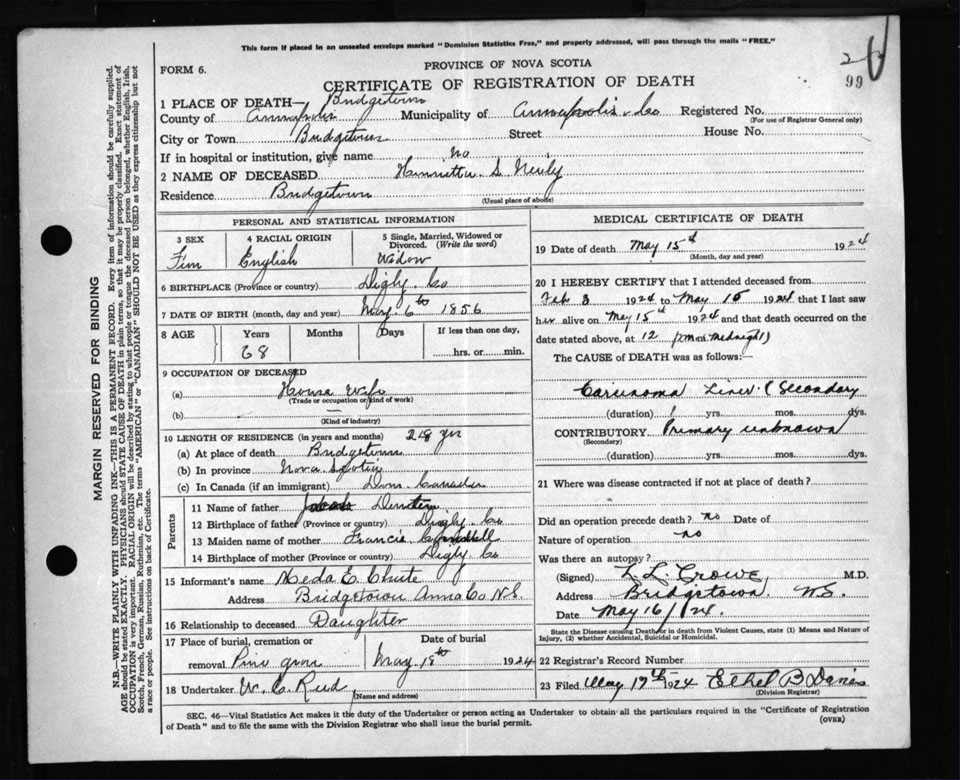 This form if placed in an unsealed envelope marked "Dominion Statistics Free," and properly addressed, will pass through the mails "FREE."
FORM 6.
PROVINCE OF NOVA SCOTIA
CERTIFICATE OF REGISTRATION OF DEATH
99
1 PLACE OF DEATH— Bridgetown
County of Annapolis Municipality of Annapolis Co Registered No.
(For use of Registrar General only)
City or Town Bridgetown Street House No.
If in hospital or institution, give name no
2 NAME OF DECEASED Henrietta S. Neily
Residence Bridgetown
(Usual place of abode)
PERSONAL AND STATISTICAL INFORMATION
3 SEX 4 RACIAL ORIGIN 5 Single, Married, Widowed or Divorced. (Write the word)
Fem English Widow
6 BIRTHPLACE (Province or country) Digby Co
7 DATE OF BIRTH (month, day and year) 6th 1856
8 AGE Years Months Days If less than one day,
68 hrs. or min.
9 OCCUPATION OF DECEASED
(a) House Wife
(Trade or occupation or kind of work)
(b) —
(Kind of industry)
10 LENGTH OF RESIDENCE (in years and months) 28 yrs
(a) At place of death Bridgetown
(b) In province Nova Scotia
(c) In Canada (if an immigrant) Dom. Canada
Parents
11 Name of father
12 Birthplace of father (Province or country) Digby Co
13 Maiden name of mother Francis
14 Birthplace of mother (Province or country) Digby Co
15 Informant's name Meda E. Chute
Address Bridgetown Anna Co N.S.
16 Relationship to deceased Daughter
17 Place of burial, cremation or removal Date of burial
May 18th 1924
18 Undertaker W. C. Reid
(Name and address)
MEDICAL CERTIFICATE OF DEATH
19 Date of death May 15th 1924
(Month, day and year)
20 I HEREBY CERTIFY that I attended deceased from
Feb 3 1924 to May 15 1924 that I last saw
her alive on May 15th 1924 and that death occurred on the
date stated above, at 12 midnight)
The CAUSE OF DEATH was as follows:—
Carcinoma Liver (Secondary
(duration) 1 yrs. mos. dys.
CONTRIBUTORY Primary unknown
(Secondary)
(duration) yrs. mos. dys.
21 Where was disease contracted if not at place of death?
Did an operation precede death? no Date of
Nature of operation no
Was there an autopsy?
(Signed) L. L. Crowe M.D.
Address Bridgetown, N.S.
Date May 16/24.
State the Disease causing Death, or in death from Violent Causes, state (1) Means and Nature of
Injury, (2) whether Accidental, Suicidal or Homicidal.
22 Registrar's Record Number
23 Filed May 17th 1924 Ethel B Davies
(Division Registrar)
SEC. 46—Vital Statistics Act makes it the duty of the Undertaker or person acting as Undertaker to obtain all the particulars required in the "Certificate of Registration
of Death" and to file the same with the Division Registrar who shall issue the burial permit.
(OVER)
MARGIN RESERVED FOR BINDING
N.B.—WRITE PLAINLY WITH UNFADING INK—THIS IS A PERMANENT RECORD. Every item of information should be carefully supplied.
AGE should be stated EXACTLY. PHYSICIANS should STATE CAUSE OF DEATH in plain terms, so that it may be properly classified. Exact statement of
OCCUPATION is very important. RACIAL ORIGIN will be described by stating to what people or tongue the deceased person belonged, whether English, Irish,
Scotch, French, German, Russian, Ruthenian, etc. The terms "AMERICAN" or "CANADIAN" SHOULD NOT BE USED as they express citizenship but not
a race or people. See instructions on back of Certificate.